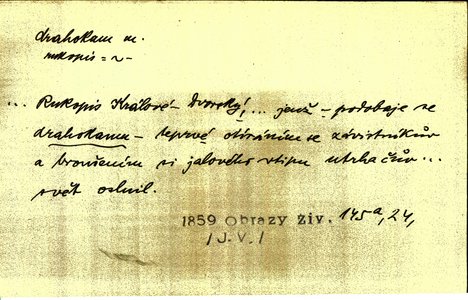 drahokam m.
rukopis = ~
... Rukopis Králové-Dvorský, ... jenž - podobaje se
drahokamu - teprvé otíráním se závistníkův
a broušením si jalového vtipu utrhačův ...
svět oslnil.
1859 Obrazy živ. 145a, 24,
/J.V./